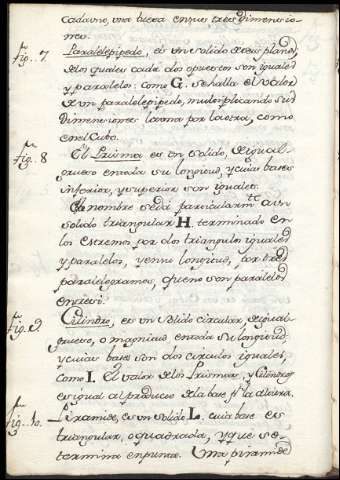 cada uno, una tuesa en sus tres dimensio-
nes.
Fig.ª 7
Paralelepipedo, es un solido de seis planos
de los quales cada dos opuestos son iguales
y paralelos: como G. se halla el valor
de un paralelepipedo, multiplicando sus
dimensiones la una por la otra, como
en el Cubo.
Fig.ª 8
El Prisma es un solido, de igual
grueso en toda su longitud, y cuias bases
inferior, y superior son iguales.
Este nombre se dá particularm.te a un
solido triangular H. terminado en
los estremos por dos triangulos iguales
y paralelos, y en su longitud, por tres
paralelogramos, que no son paralelos
entre si.
Fig.ª 9.
Cilindro, es un solido circular, de igual
grueso, o magnitud en toda su longitud,
y cuias bases son dos circulos iguales,
como I. El valor de los Prismas, y Cilindros
es igual al producto de la base p.r la altura.
Fig.ª 10.
Piramide, es un solido L. cuia base es
triangular, o quadrada, y que se
termina en punta. Una piramide